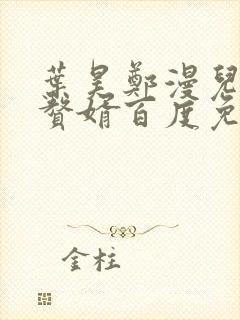 葉昊鄭漫兒
贅婿百度免
金柱